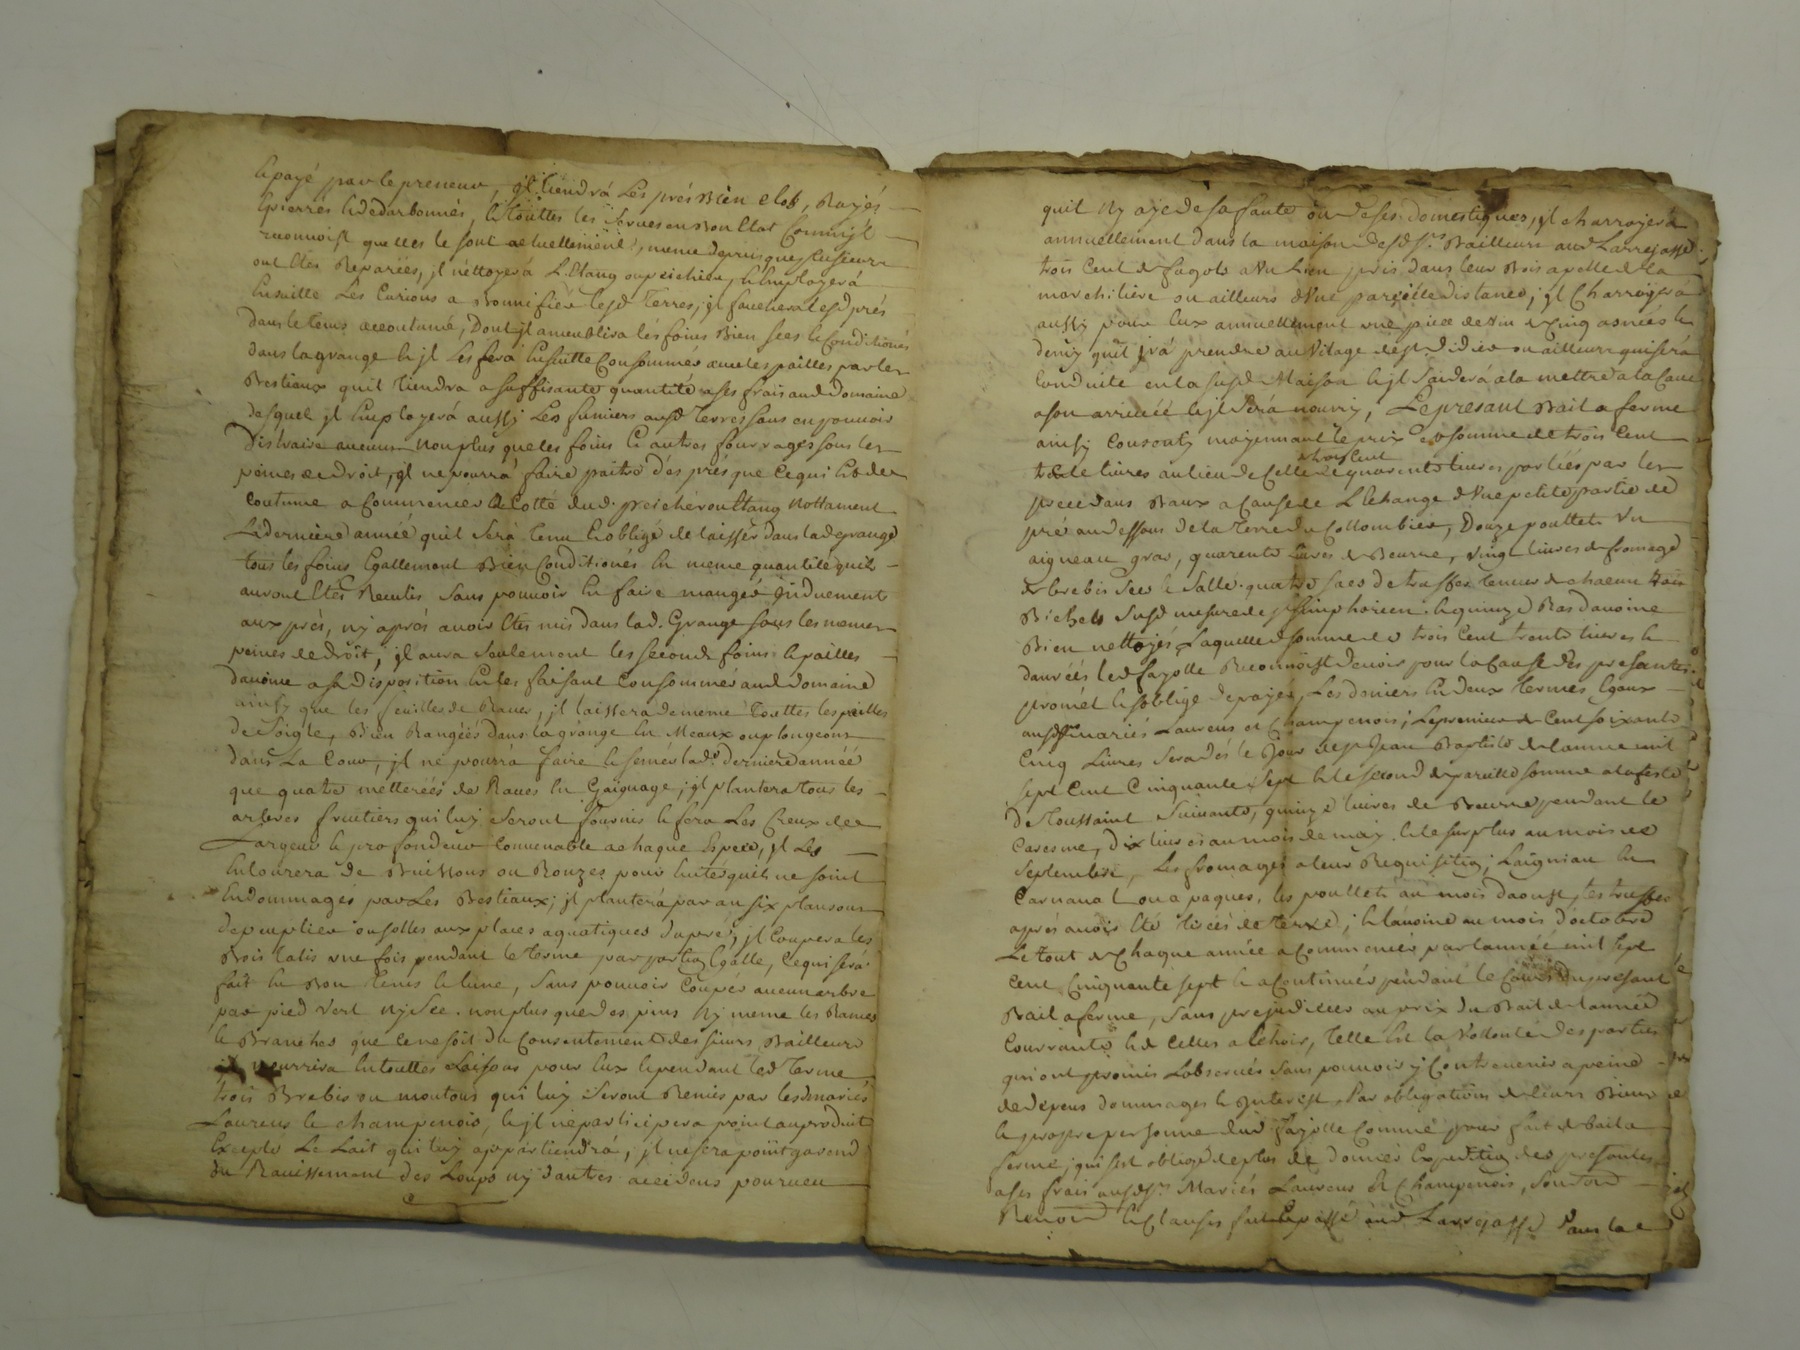 et payé par le preneur, jl tiendrá Les prés Bien clos, Rayés
epierrés et dedarbonnés, et touttes les Serves en Bon Etat Comm'jl
reconnoist quelles le sont actuellement, meme depuis que plusieurs
ont Etés Reparées, jl néttoyerá L'Etang ou peicherie, et Employerá
Ensuitte Les Curions a Bonnifiér lesd Terres; jl fauchera lesd prés
dans le tems accoutumé, Dont jl ameublira lés foins Bien secs et Conditionés
dans la grange et jl les ferá Ensuitte Consommér avec les pailles par les
Bestiaux quil tiendra a suffisante quantité a ses frais aud Domaine
desquel jl Employerá aussj Les fumiers ausd Terres sans en pouvoir
distraire aucun Non plus que les foins et autres fourrages sous les
peines de droit, jl ne pourrá faire paitre dés prés que ce qui Est de
Coutume a Commencer du Cotté dud. peicher ou Etang Nottament
La derniere année quil serà tenu et obligé de laissér dans lad grange
tous les foins Egallement Bien Conditionés En meme quantité quils
auront Etés Reculis Sans pouvoir En faire mangér jnduement
aux prés, ny aprés avoir Etés mis dans lad. Grange sous les memes
peines de droit, jl aura seulement les seconds foins et pailles
davoine a sa Disposition En les faisant Consommér aud Domaine
ainsy que les feuilles de Raves, jl laissera de meme touttes les pailles
de Soigle, Bien Rangéés dans la grange En Meaux ou plongeons
dans La Cour, jl ne pourrá faire et semér lad.e derniere année
que quatre metteréés de Raves En Gaignage; jl plantera tous les
arbres fruitiers qui luy seront fournis et fera Les Creux de
Largeur et profondeur Convenable a chaque Espece, jl Les
Entourera de Buissons ou Ronzes pour Evitér quils ne soint
Endommagés par Les Bestiaux; jl plantérá par an six plansons
de peuplier ou solles aux places aquatiques du pré; jl Coupera les
Bois talis une fois pendant le terme par portion Egalle, Ce qui sera
fait En Bon tems et lune, Sans pouvoir Coupér aucun arbre
par pied Vert ny sec. non plus que des pins Ny meme les Rames
et Branches que ce ne soit du Consentement desd sieurs Bailleurs
nourrira En touttes Saisons pour Eux et pendant led Terme
trois Brebis ou moutons qui luy seront Remis par lesd mariés
Laurens et champenois, et jl ne participera point au produit
Excepté Le Lait qui luy appartiendrá, jl ne sera point garend
du Ravissement des Loups ny dautres accidens pourveu
quil Ny aye de sa faute ou de ses domestiques, jl charroyera
annuellement dans la maison desd Srs Bailleurs aud Larrajasse
trois Cent de fagots a Un Lien pris dans leur Bois apellé de la
marchiliere ou ailleurs dUne pareille distance; jl Charroyerá
aussy pour Eux annuellement une piece de vin de Cinq asnées et
demy quil jrá prendre au Vilage de st Didier ou ailleurs qui serà
Conduite en la susd Maison et jl saiderá a la mettre a la Cave
a son arrivéé et jl serà nourry, Le presant Bail a ferme
ainsy Consenty moyennant le prix et somme de trois Cent
trente livres au lieu de Celle de trois Cent quarente livres portéés par les
precedans Baux a Cause de L'Echange dUne petite partie de
pré au dessous de la Terre du Collombier, Douze poullets Un
aigneau gras, quarente Livres de Beurre, vingt livres de fromage
de brebis sec et sallé. quatre sacs de truffes tenus de chacun trois
Bichets susd mesure de st simphorien. et quinze Ras davoine
Bien nettoyés Laquelle somme de trois Cent trente livres et
danréés led fayolle Reconnoist devoir pour la Cause des presantes
promet et soblige de payér, Les deniers En deux termes Egaux
ausd mariés Laurens et Champenois; Le premier de Cent soixante
Cinq Livres sera dés le Jour de st Jean Baptiste de lannée mil
sept Cent Cinquante sept et le second de pareille somme a la feste
de Toussaint suivante, quinze livres de Beurre pendant le
Caresme, dix livres au mois de may. et le surplus au mois de
septembre, Les fromages a leur Requisition; Laigniau En
Carnaval ou a paques, les poullets au mois daoust, les truffes
aprés avoir Eté tiréés de terre; et lavoine au mois d'octobre
Le tout de chaque année a Commencér par lannéé mil sept
Cent Cinquante sept et a Continuér pendant le Cours du presant
Bail a ferme, sans prejudicier au prix du Bail de lannéé
Courrante et de Celles a Echoir, Telle Est la Vollonté des parties
qui ont promis Lobservér sans pouvoir y Contrevenir a peine
de depens dommages et jnterest. Par obligation de leurs Biens
et propre personne dud Fayolle Comme pour fait de bail a
ferme, qui s'est obligé de plus de donnér Expedition des presantes
a ses frais ausd Srs Mariés Laurens Et Champenois, Sous
Renon et Clauses fait Et passé aud Larrajasse Dans la